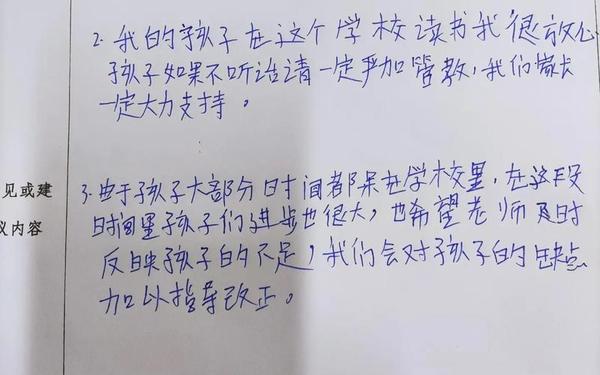 2. 我的孩子在这个学校读书我很放心
孩子如果不听话请一定严加管教，我们家长
一定大力支持。
见或建
议内容
3. 由于孩子大部分时间都呆在学校里，在这段
时间里孩子们进步也很大，也希望老师及时
反映孩子的不足，我们会对孩子的缺点
加以指导改正。